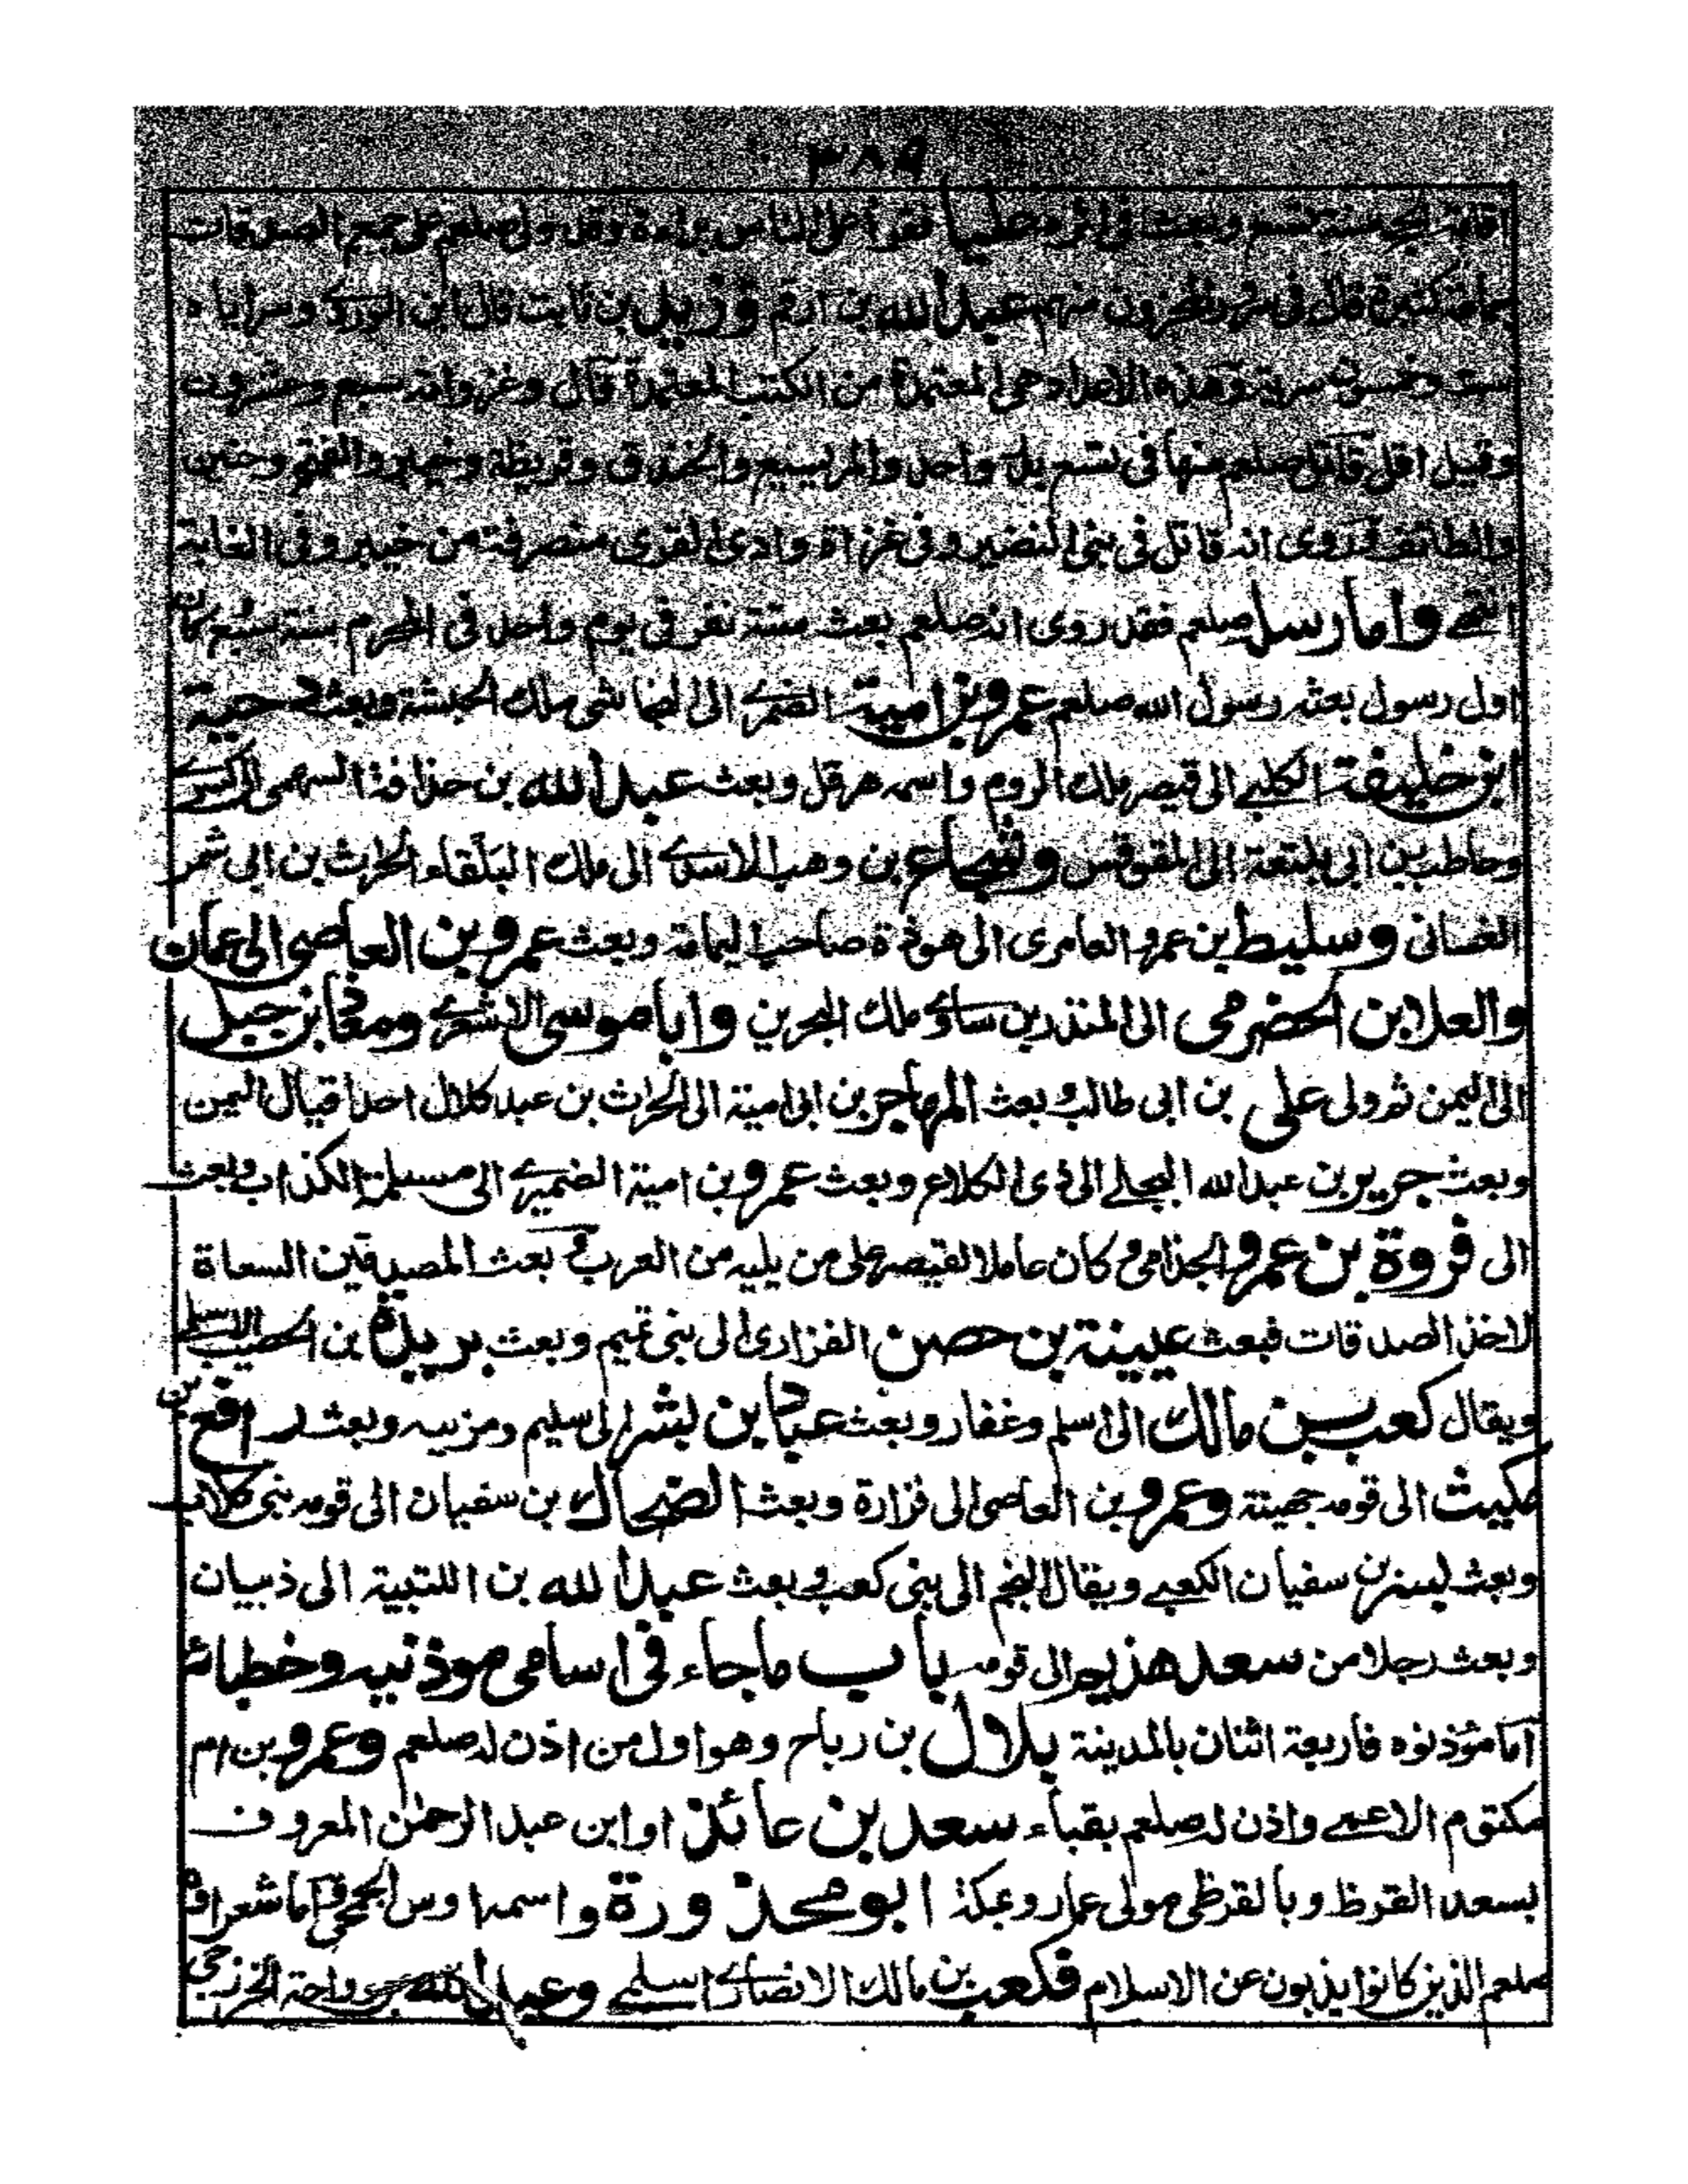 ٣٨٩
اقامة الحج سنة تسع وبعث فى اثره عليا فقرأ على الناس براءة وقد ولى صلعم على جميع الصدقات
جماعة كثيرة قال فى منهم عبد الله بن ارقم وزيد بن ثابت قال ابن الوردى وسراياه
ست وخمسون سرية وهذه الاعداد هى المعتمدة من الكتب المعتمدة قال وغزواته سبع وعشرون
وقيل اقل قاتل صلعم منها فى تسع بدر واحد والمريسيع والخندق وقريظة وخيبر والفتح وحنين
والطائف وروى انه قاتل فى بنى النضير وفى غزاة وادى القرى منصرفه من خيبر وفى الغابة
انتهى واما رسل صلعم فقد روى انه صلعم بعث ستة نفر فى يوم واحد فى المحرم سنة سبع كان
اول رسول بعثه رسول الله صلعم عمرو بن امية الضمرى الى النجاشى ملك الحبشة وبعث دحية
ابن خليفة الكلبى الى قيصر ملك الروم واسمه هرقل وبعث عبد الله بن حذافة السهمى الى كسرى
وحاطب بن ابى بلتعة الى المقوقس وشجاع بن وهب الاسدى الى ملك البلقاء الحارث بن ابى شمر
الغسانى وسليط بن عمرو العامرى الى هوذة صاحب اليمامة وبعث عمرو بن العاصى الى عمان
والعلا بن الحضرمى الى المنذر بن ساوى ملك البحرين وابا موسى الاشعرى ومعاذ بن جبل
الى اليمن ثم ولى على بن ابى طالب وبعث المهاجر بن ابى امية الى الحارث بن عبد كلال احد اقيال اليمن
وبعث جرير بن عبد الله البجلى الى ذى الكلاع وبعث عمرو بن امية الضميرى الى مسيلمة الكذاب وبعث
الى فروة بن عمرو الجذامى وكان عاملا لقيصر على من يليه من العرب وبعث المصدقين السعاة
لاخذ الصدقات فبعث عيينة بن حصن الفزارى الى بنى تميم وبعث بريدة بن الحصيب الاسلمى
ويقال كعب بن مالك الى اسلم وغفار وبعث عباد بن بشر الى سليم ومزينه وبعث رافع بن
مكيث الى قومه جهينة وعمرو بن العاصى الى فزارة وبعث الضحاك بن سفيان الى قومه بنى كلاب
وبعث بسر بن سفيان الكعبى ويقال النحم الى بنى كعب وبعث عبد الله بن اللتبية الى ذبيان
وبعث رجلا من سعد هذيم الى قومه باب ما جاء فى اسامى موذنيه وخطبائه
اما مؤذنوه فاربعة اثنان بالمدينة بلال بن رباح وهو اول من اذن له صلعم وعمرو بن ام
مكتوم الاعمى واذن له صلعم بقباء سعد بن عائذ او ابن عبد الرحمن المعروف
بسعد القرظ وبالقرظى مولى عمار وبمكة ابو محذورة واسمه اوس الجمحى واما شعراؤه
صلعم الذين كانوا يذبون عن الاسلام فكعب بن مالك الانصارى السلمى وعبد الله بن رواحة الخزرجى